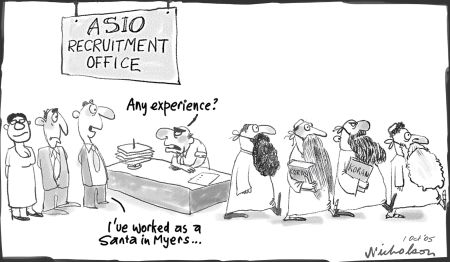 ASIO
RECRUITMENT
OFFICE
Any experience?
I've worked as a
Santa in Myers...
KORAN
KORAN
1 Oct '05
Nicholson